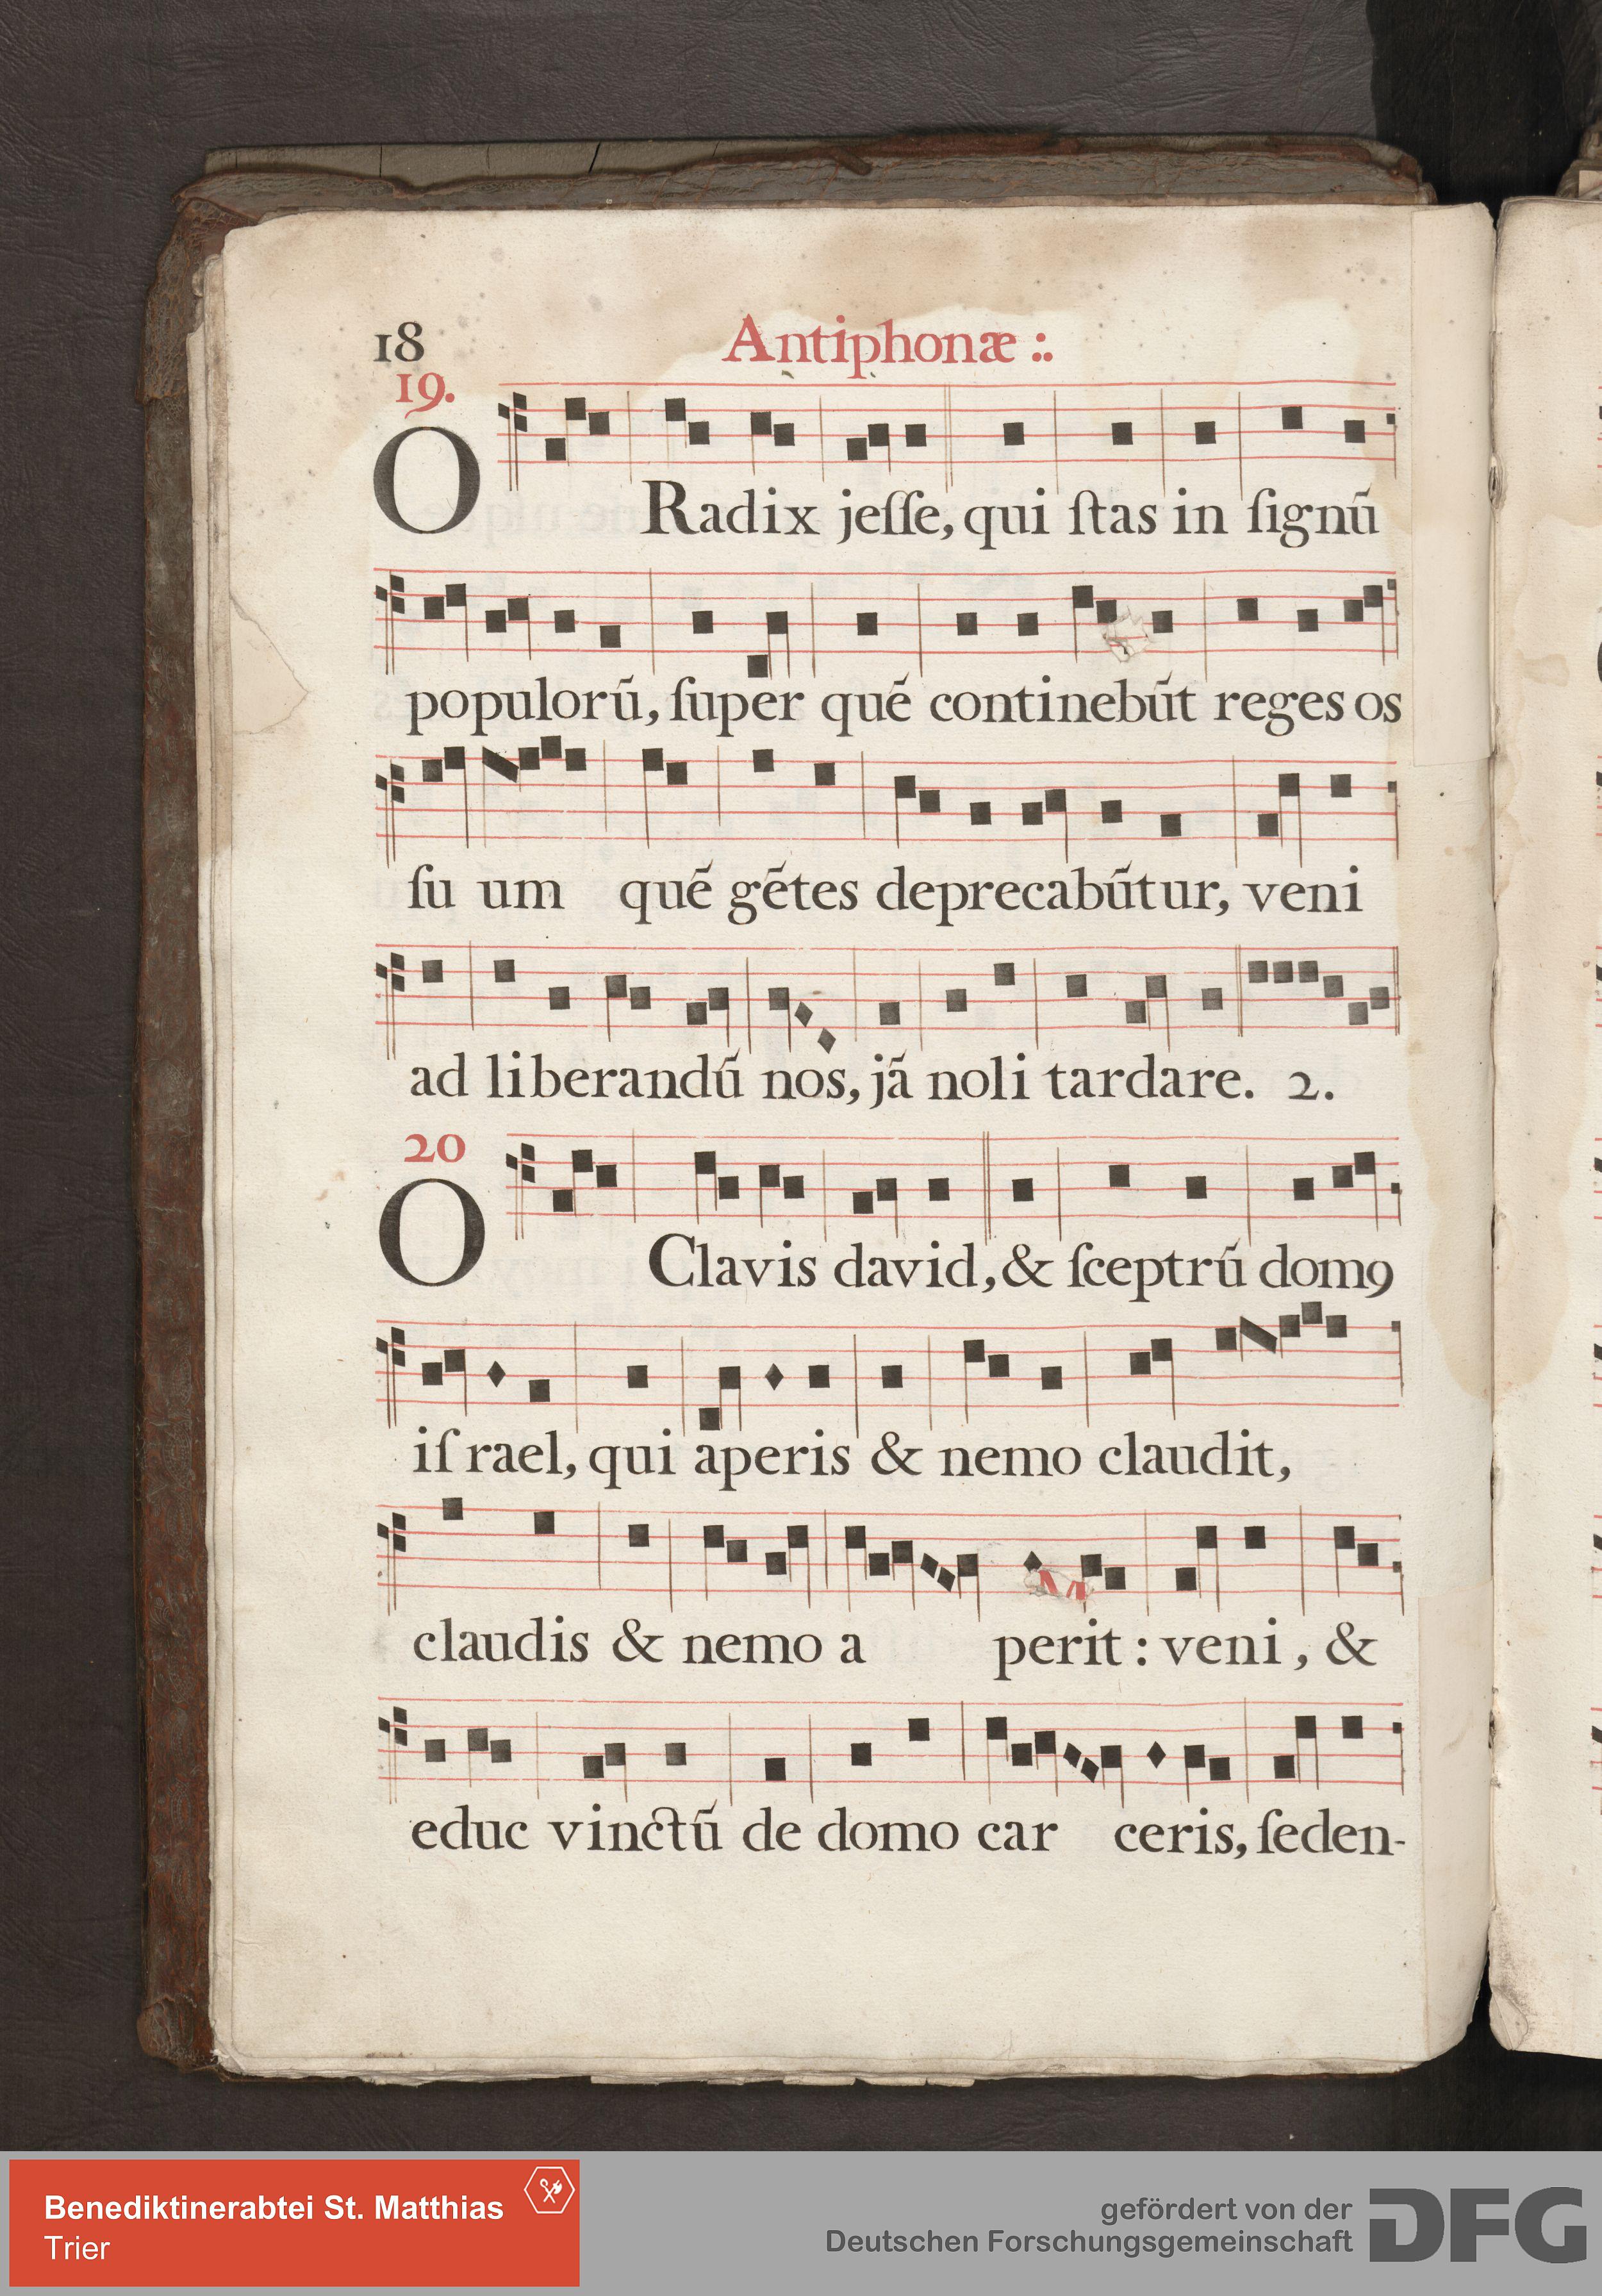 18 Antiphonæ :.
19.
O Radix jeſſe, qui ſtas in ſignũ
populorũ, ſuper quẽ continebũt reges os
ſu um quẽ gẽtes deprecabũtur, veni
ad liberandũ nos, jã noli tardare. 2.
20
O Clavis david, & ſceptrũ domꝯ
iſ rael, qui aperis & nemo claudit,
claudis & nemo a perit : veni, &
educ vinctũ de domo car ceris, ſeden-
Benediktinerabtei St. Matthias
Trier
gefördert von der
Deutschen Forschungsgemeinschaft
DFG